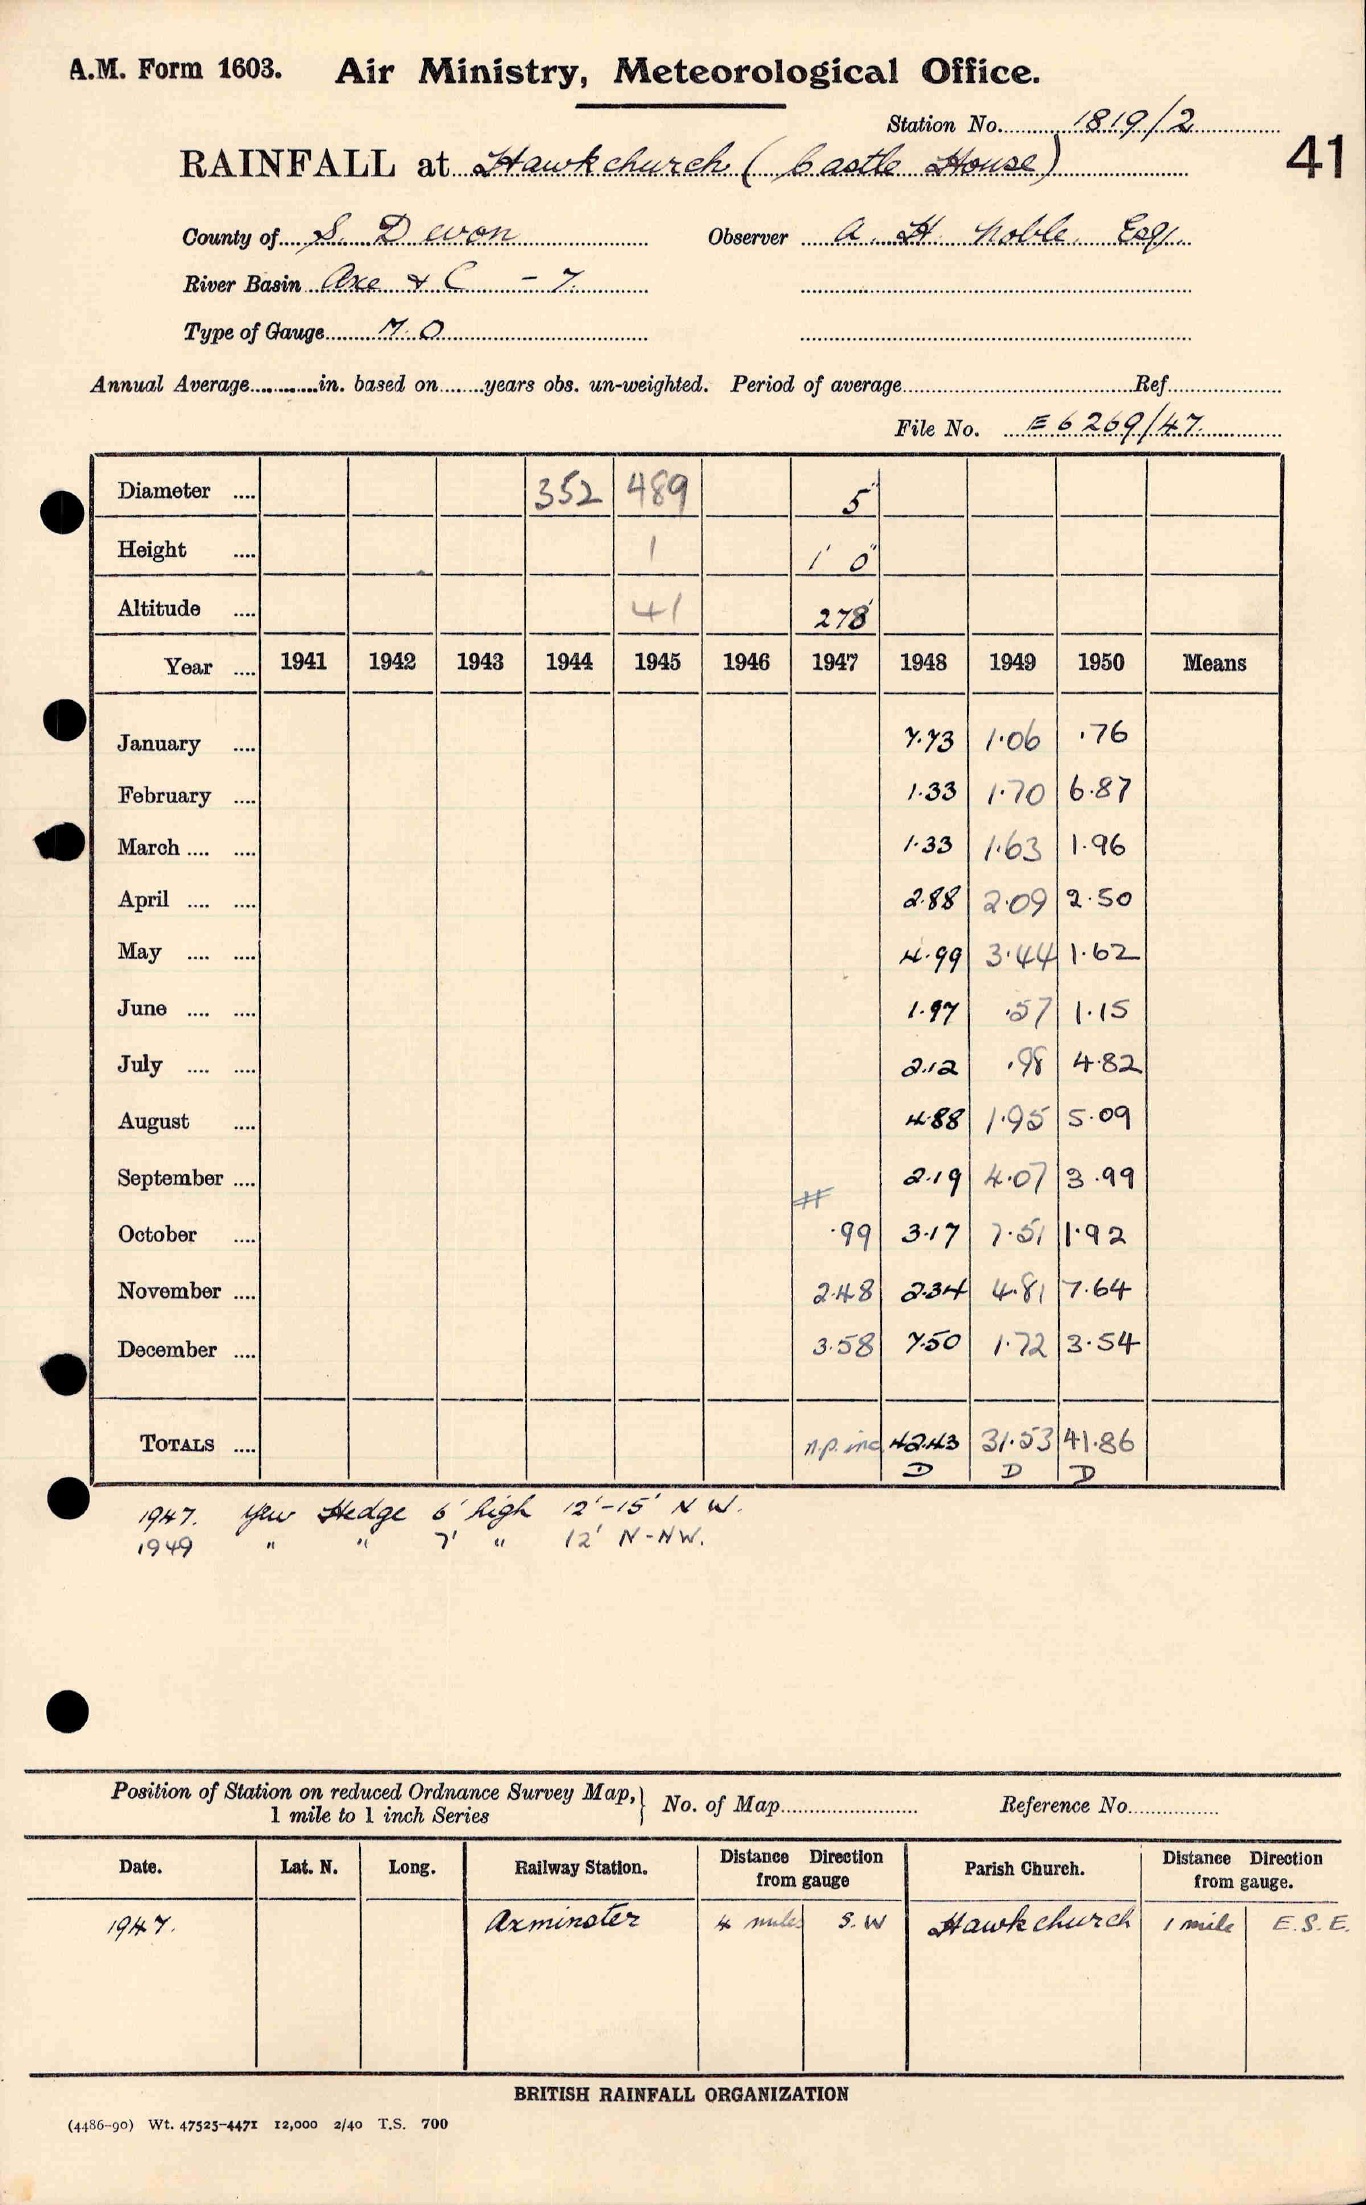 A.M. Form 1603. Air Ministry, Meteorological Office.
Station No. 1819/2
41
RAINFALL at Hawkchurch (Castle House)
County of S. Devon Observer A. H. Noble. Esq.
River Basin Axe & C - 7
Type of Gauge M.O
Annual Average in. based on years obs. un-weighted. Period of average Ref
File No. E6269/47
Diameter 352 489 5"
Height 1 1' 0"
Altitude 41 278'
Year 1941 1942 1943 1944 1945 1946 1947 1948 1949 1950 Means
January 7.73 1.06 .76
February 1.33 1.70 6.87
March 1.33 1.63 1.96
April 2.88 2.09 2.50
May 4.99 3.44 1.62
June 1.97 .57 1.15
July 2.12 .98 4.82
August 4.88 1.95 5.09
September 2.19 4.07 3.99
#
October .99 3.17 7.51 1.92
November 2.48 2.34 4.81 7.64
December 3.58 7.50 1.72 3.54
TOTALS n.p. inc 42.43 31.53 41.86
D D D
1947. Yew Hedge 6' high 12'-15' N W.
1949 " " 7' " 12' N-NW.
Position of Station on reduced Ordnance Survey Map, 1 mile to 1 inch Series } No. of Map Reference No.
Date. Lat. N. Long. Railway Station. Distance Direction from gauge Parish Church. Distance Direction from gauge.
1947. Axminster 4 miles S.W Hawkchurch 1 mile E.S.E.
BRITISH RAINFALL ORGANIZATION
(4486-90) Wt. 47525-4471 12,000 2/40 T.S. 700